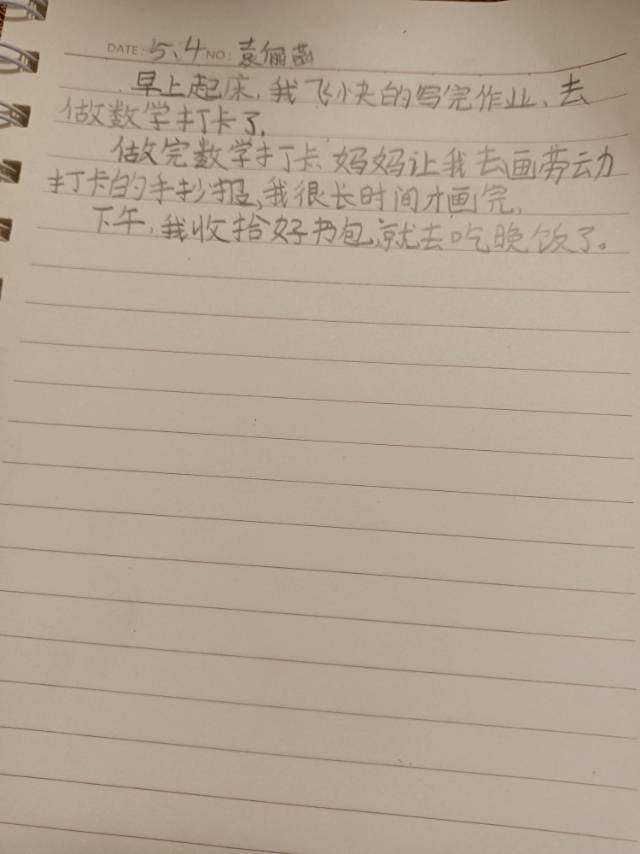 DATE: 5.4 NO: 袁俪菡
早上起床,我飞小夹的写完作业、去
做数学打卡了,
做完数学打卡 妈妈让我去画劳动
打卡的手抄报,我很长时间才画完,
下午,我收拾好书包,就去吃晚饭了。